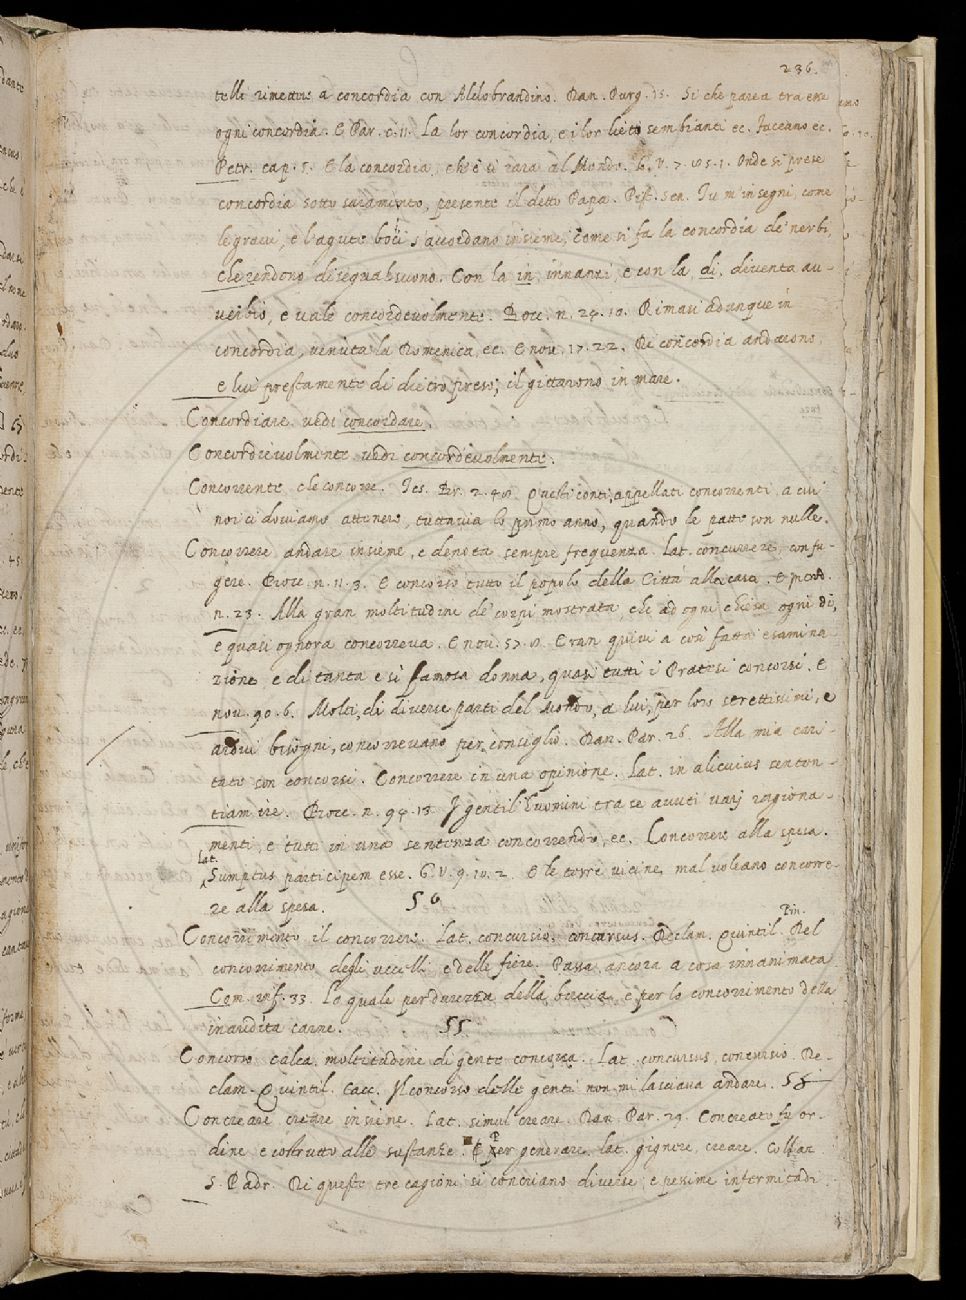 236.
telli rimettere a concordia con Aldobrandino. Dan. Purg. 15. Si che parea tra esse
ogni concordia. E Par. c. 11. La lor concordia, e i lor lieti sembianti ec. Faceano ec.
Petr. cap. 5. E la concordia, ch'è sì rara al Mondo. G. V. 7. 51. Onde si prese
concordia sotto saramento, presente il detto Papa. Pist. Sen. Tu m'insegni, come
le gravi, e l'agute boci s'accordano insieme, come si fa la concordia de' nerbi,
che rendono disegual suono. Con la in, innanzi, e con la, di, diventa au-
verbio, e vale concordevolmente. Bocc. n. 24. 10. Rimasi adunque in
concordia, venuta la Domenica, ec. E nov. 17. 22. Di concordia andarono,
e lui prestamente di dietro preso, il gittarono in mare.
Concordiare vedi concordare.
Concordievolmente vedi concordevolmente.
Concorrente che concorre. Tes. Br. 2. 48. Questi conti, appellati concorrenti, a cui
noi ci doviamo attenere, tuttavia lo primo anno, quando le patte son nulle.
Concorrere andare insieme, e denota sempre frequenza. Lat. concurrere, confu-
gere. Bocc. n. 11. 3. E concorso tutto il popolo della Città alla casa. E
n. 23. Alla gran moltitudine de' corpi mostrata, che ad ogni chiesa ogni dì,
e quasi ogn'hora concorreva. E nov. 57. 8. Eran quivi a così fatta esamina-
zione e di tanta e sì famosa donna, quasi tutti i Pratesi concorsi. E
nov. 90. 6. Molti, di diverse parti del Mondo, a lui, per loro strettissimi, e
ardui bisogni, concorrevano per consiglio. Dan. Par. 26. Alla mia cari-
tate son concorsi. Concorrere in una opinione. Lat. in alicuius senten-
tiam ire. Bocc. n. 94. 13. I gentil'huomini tra se avuti varj ragiona-
menti, e tutti in una sentenza concorrendo, ec. Concorrere alla spesa.
Lat.
Sumptus participem esse. G. V. 9. 10. 2. E le torre vicine, mal voleano concorre-
re alla spesa. 56
Concorrimento il concorrere. Lat. concursio. concursus. Declam. Quintil. Pin. Del
concorrimento degli uccelli e delle fiere. Passa ancora a cosa innanimata
Com. inf. 33. Lo quale per durezza della buccia, e per lo concorrimento della
inaridita carne. 55
Concorso calca, moltitudine di gente concorsa. Lat. concursus, concursio. De-
clam. Quintil. Cacc. Il concorso delle genti non mi lasciava andare. 58
Concreare creare insieme. Lat. simul creare. Dan. Par. 29. Concreato fu or-
dine e costrutto alle sustanze. E P per generare lat. gignere, creare. Collaz.
S. Padr. Di queste tre cagioni si concriano diverse, e pesime infermitadi